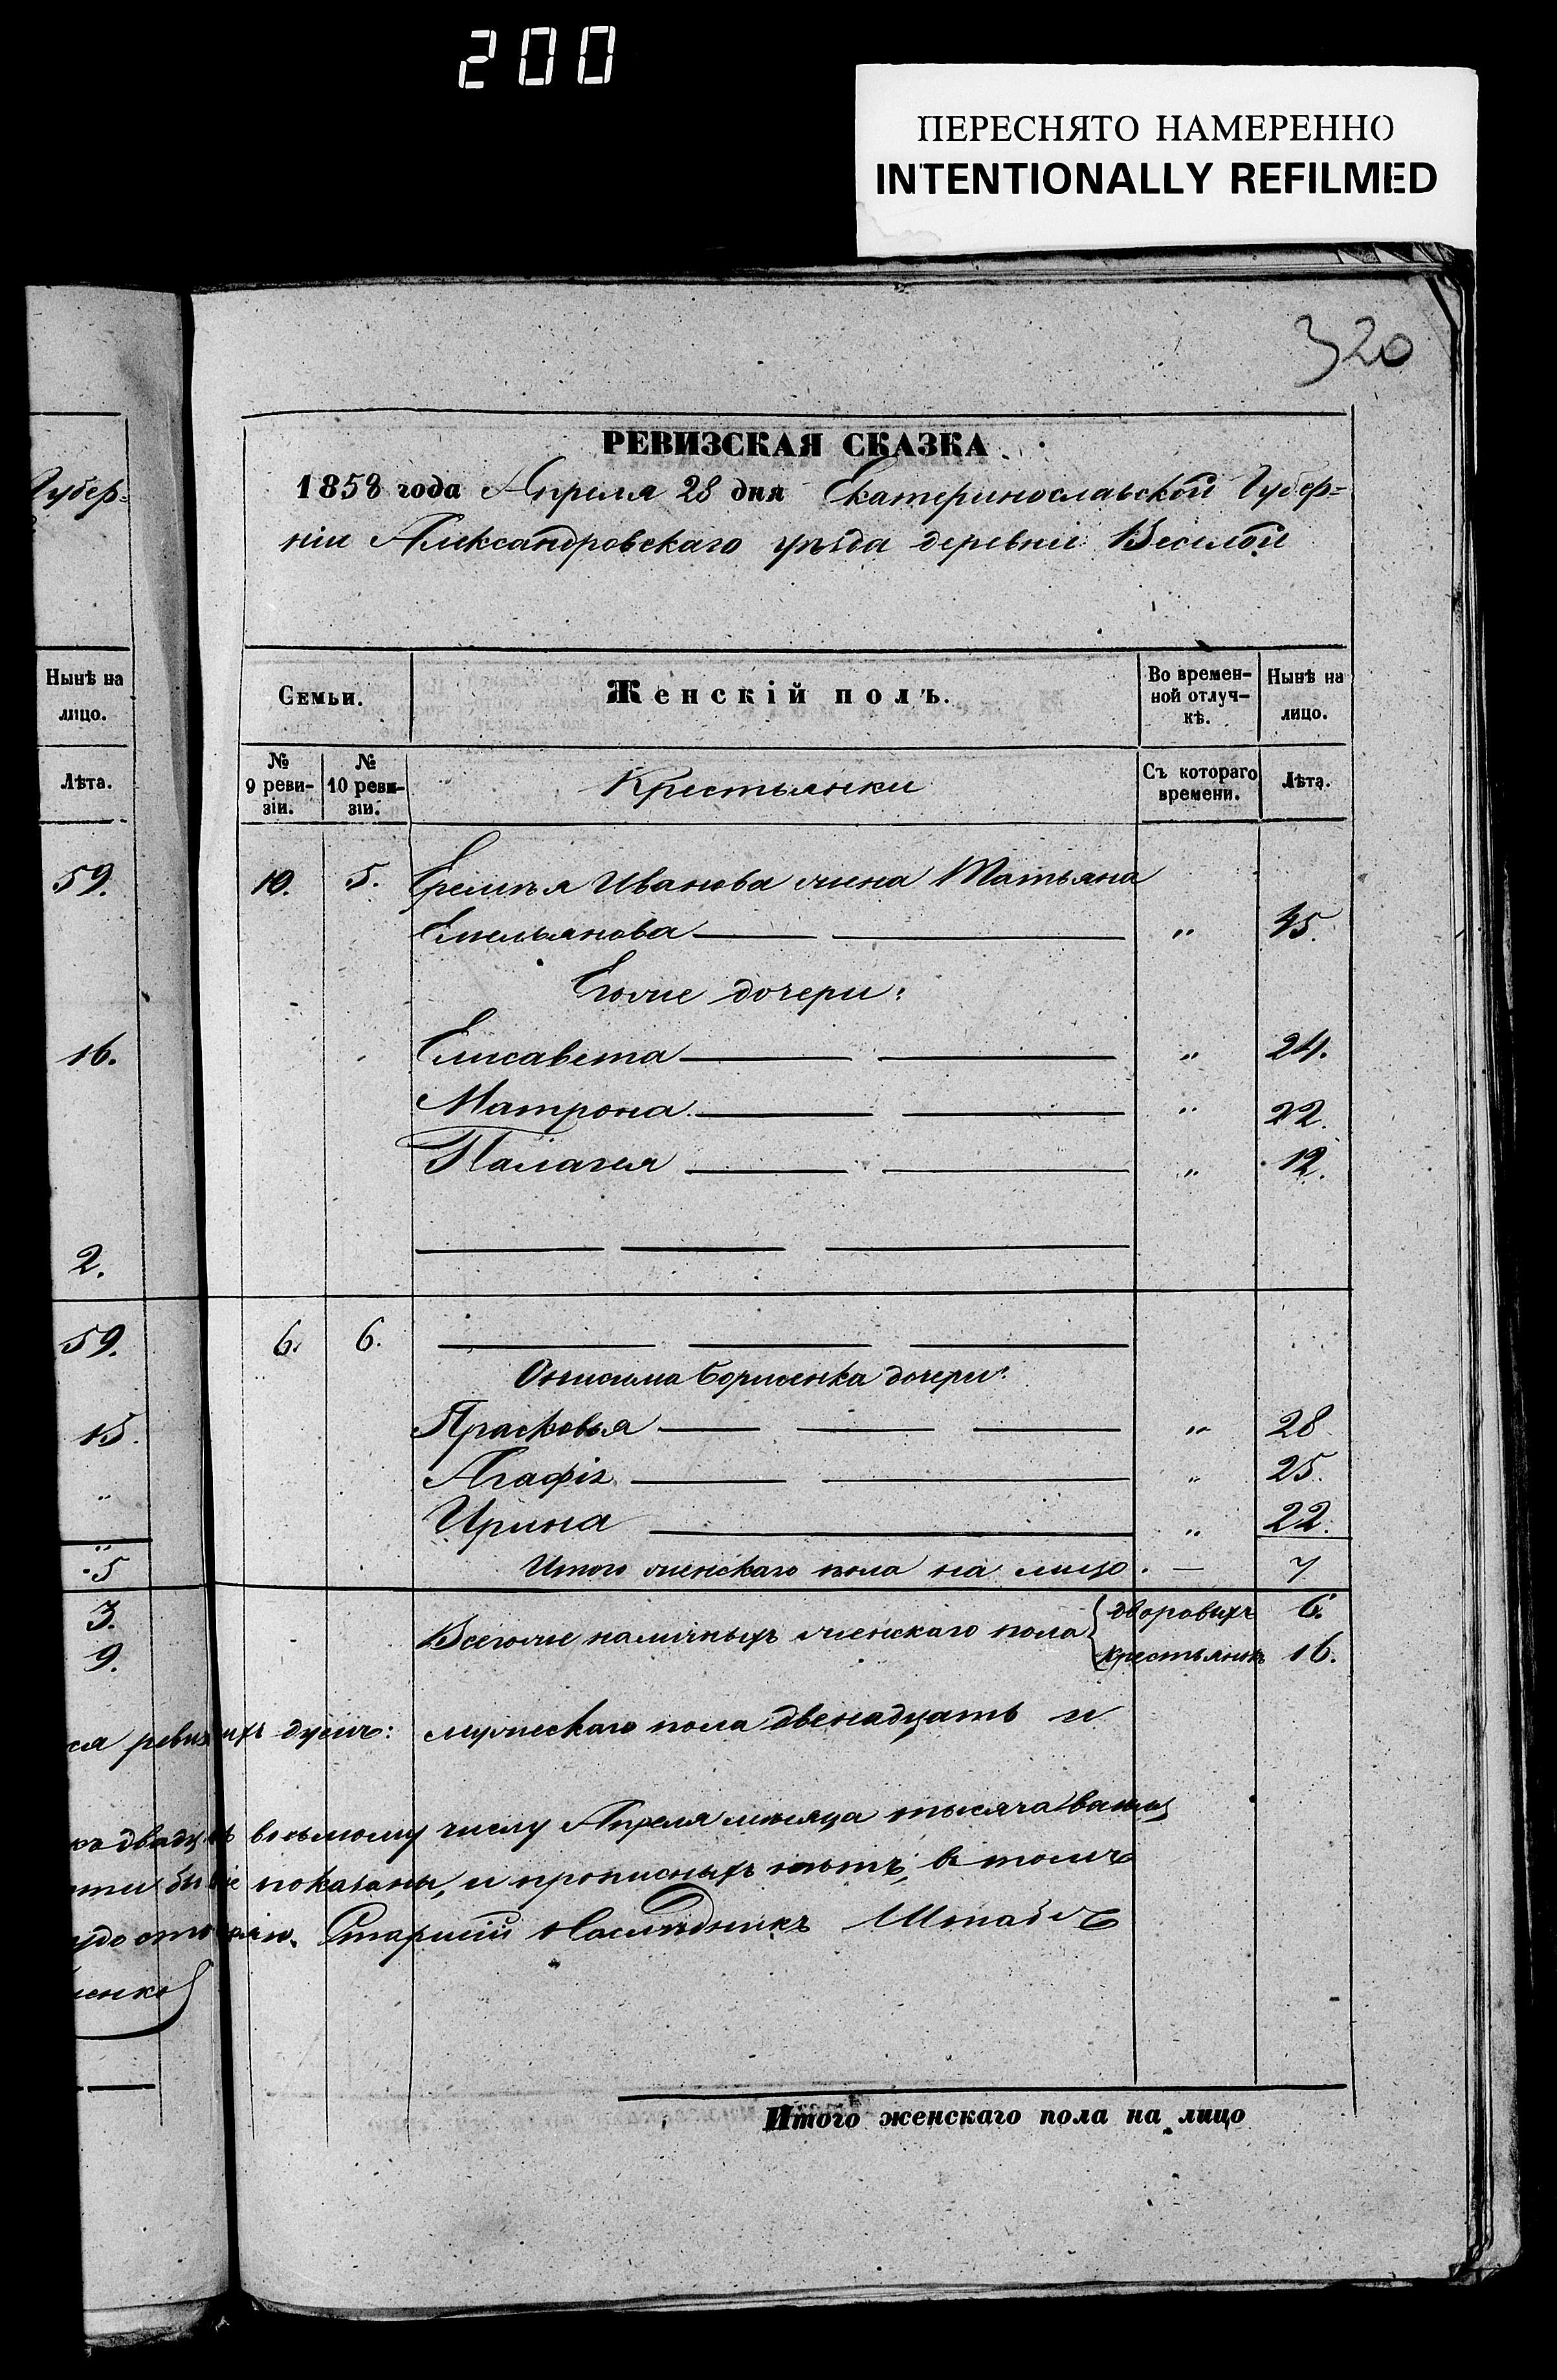 200
ПЕРЕСНЯТО НАМЕРЕННО
INTENTIONALLY REFILMED
320
РЕВИЗСКАЯ СКАЗКА
1858 года Апреля 28 дня Екатеринославской Губер=
ніи Александровскаго уѣзда деревни Веселой
Губер=
Нынѣ на
лицо.
Лѣта.
59.
16.
2.
59.
15.
„
„
5
3.
9.
Семьи.
Женскій полъ.
Во времен-
ной отлуч-
кѣ.
Нынѣ на
лицо.
№
9 реви-
зіи.
№
10 реви-
зіи.
Крестьянки
Съ котораго
времени.
Лѣта.
10. 5. Еремѣя Иванова жена Татьяна
Емельянова „ 45.
Егоже дочери:
Елисавета „ 24.
Матрона „ 22.
Палагея „ 12.
6. 6.
Онисима Борисенка дочери:
Прасковья „ 28
Агафія „ 25.
Ирина „ 22.
Итого женскаго пола на лицо. — 7
Всегоже наличныхъ женскаго пола { дворовыхъ 6.
крестьянокъ 16.
ся душъ: мужескаго пола двенадцать и
восьмому числу Апреля месяца тысяча
показаны, и прописныхъ нѣтъ, в томъ
Старшій Наследникъ Штабъ
енко
Итого женскаго пола на лицо